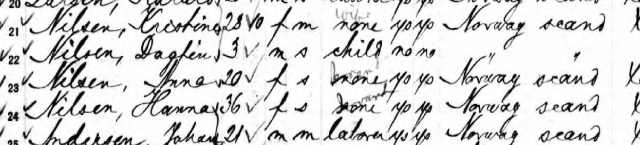 20
21 Nilsen, Kristine 23 √ f m none yo yo Norway scand
22 Nilsen, Dagfin 3 √ m s child no no " "
23 Nilsen, Anna 20 √ f s none yo yo Norway scand
24 Nilsen, Hanna 36 √ f s none yo yo Norway scand
25 Andersen, Johan 21 √ m m laborer yo yo Norway scand